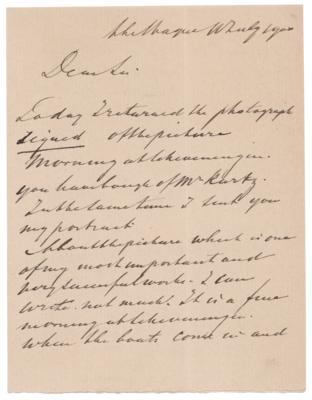 the Hague July 1900
Dear Sir.
To day I returned the photograph
signed of the picture
Morning at Scheveningen.
you have bough of Mr Kurtz.
In the same time I sent you
my portrait.
About the picture which is one
of my most important and
very succesful works. I can
write. not much. It is a fine
morning at Scheveningen.
when the boats come in and